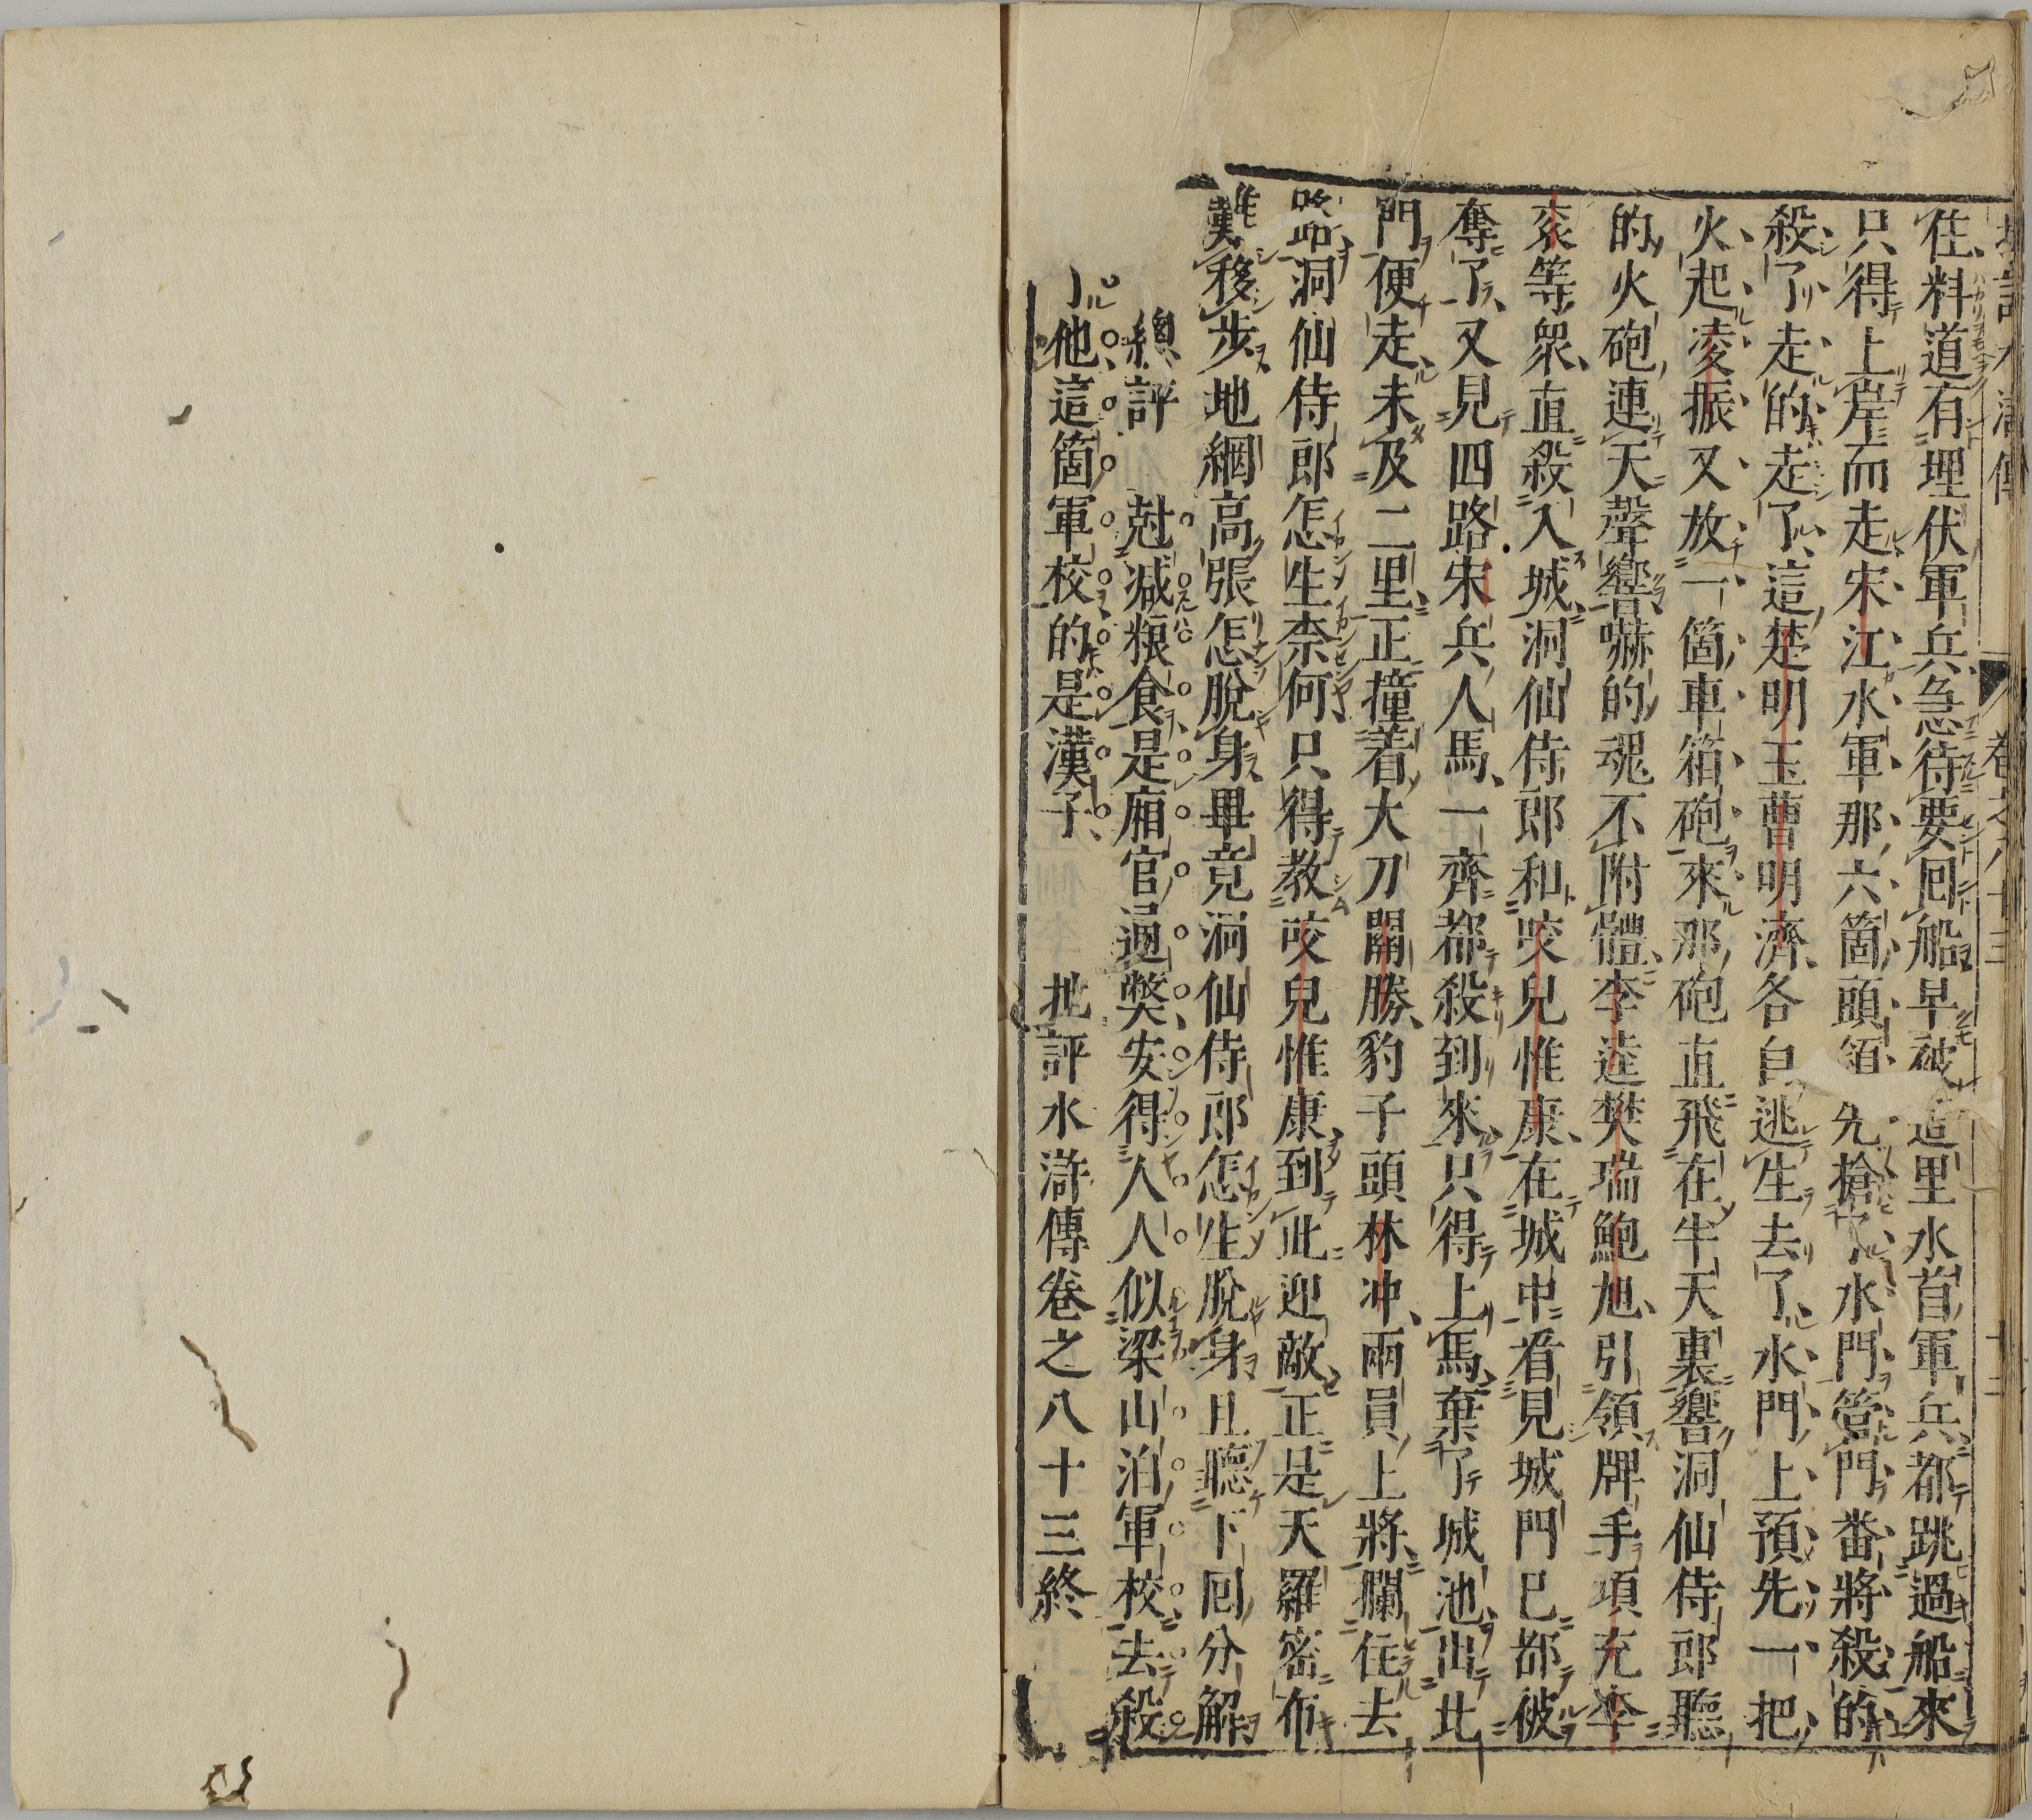 住料道有埋伏軍兵急待要回船早被這里水首軍兵都跳過船來
只得上岸而走宋江水軍那六箇頭領先搶了水門管門番將殺的
殺了走的走了這楚明玉曹明濟各自逃生去了水門上預先一把
火起凌振又放一箇車箱砲來那砲直飛在半天裏響洞仙侍郎聽
的火砲連天聲響嚇的魂不附體李逵樊瑞鮑旭引領牌手項充李
衮等衆直殺入城洞仙侍郎和咬兒惟康在城中看見城門已都被
奪了又見四路宋兵人馬一齊都殺到來只得上馬棄了城池出北
門便走未及二里正撞着大刀關勝豹子頭林冲兩員上將攔住去
路洞仙侍郎怎生柰何只得教咬兒惟康到此迎敵正是天羅密布
難移步地網高張怎脫身畢竟洞仙侍郎怎生脫身且聽下回分解
總評 尅减粮食是廂官過獘安得人人似梁山泊軍校去殺
了他這箇軍校的是漢子 批評水滸傳卷之八十三終